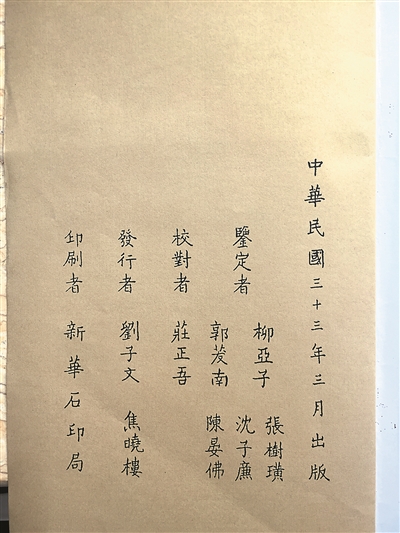 中華民國三十三年三月出版
鑒定者
柳亞子 張樹璜
沈子廉
郭茇南 陳晏佛
校對者 莊正吾
發行者 劉子文 焦曉樓
印刷者 新華石印局